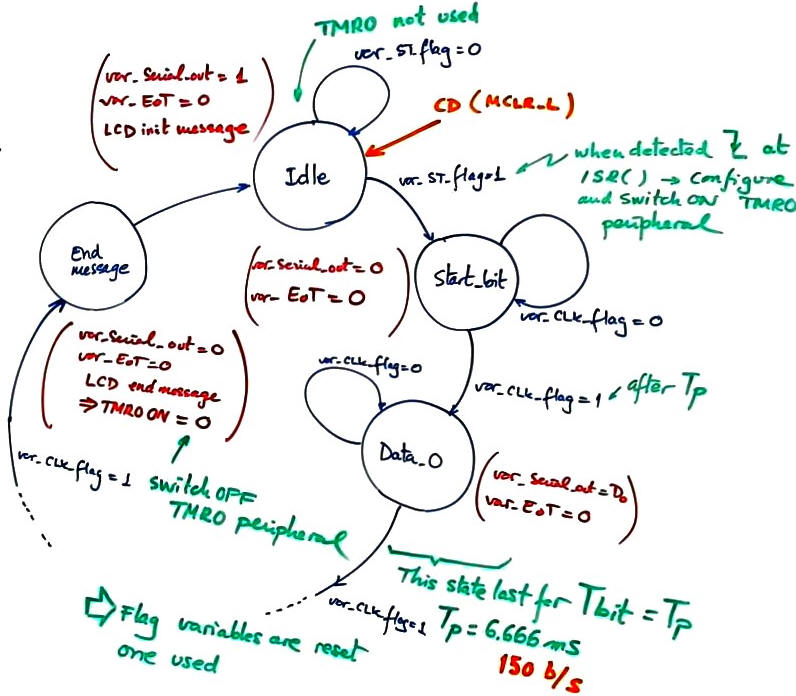 TMRO not used
var_ST_flag = 0
var_Serial_out = 1
var_EoT = 0
LCD init message
CD (MCLR_L)
Idle
var_ST_flag=1
when detected at
ISR() → configure
and switch ON TMRO
peripheral
End
message
var_Serial_out = 0
var_EoT = 0
Start_bit
var_CLK_flag = 0
var_Serial_out = 0
var_EoT = 0
LCD end message
⇒ TMRO ON = 0
var_CLK_flag = 0
var_CLK_flag = 1
after Tp
Data_0
var_Serial_out = D0
var_EoT = 0
var_CLK_flag = 1
switch OFF
TMRO peripheral
This state last for Tbit = Tp
var_CLK_flag=1
Tp = 6.666 ms
150 b/s
⇒ Flag variables are reset
one used